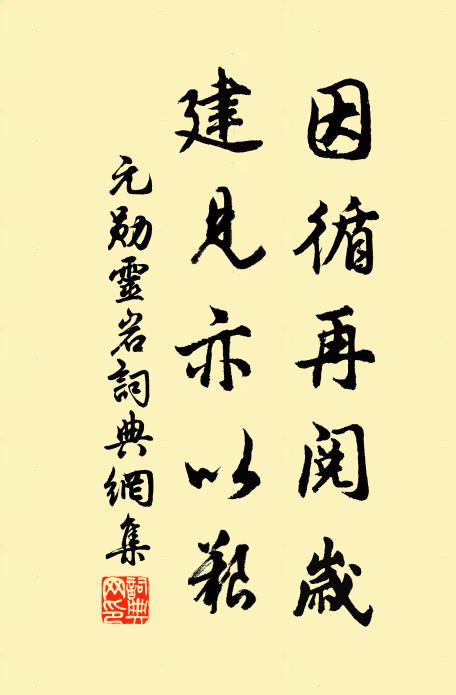 因循再閱歲
建見亦以艱
元勛靈岩詞典網集
詞典網印